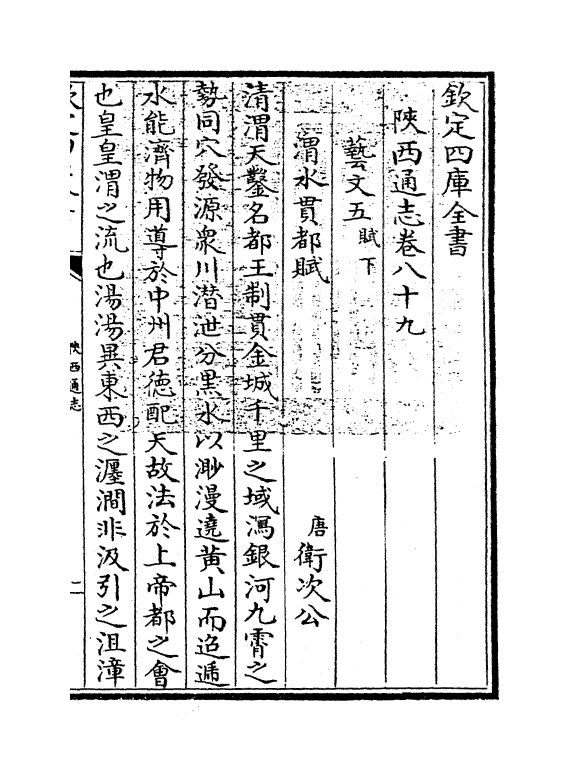 欽定四庫全書
陜西通志卷八十九
藝文五 賦下
渭水貫都賦 唐 衛次公
清渭天鑿名都王制貫金城千里之域瀉銀河九霄之
勢同穴發源衆川潜泄分黒水以渺漫遶黄山而迢遞
水能濟物用導於中州君徳配天故法於上帝都之會
也皇皇渭之流也湯湯異東西之瀍澗非汲引之沮漳
陜西通志